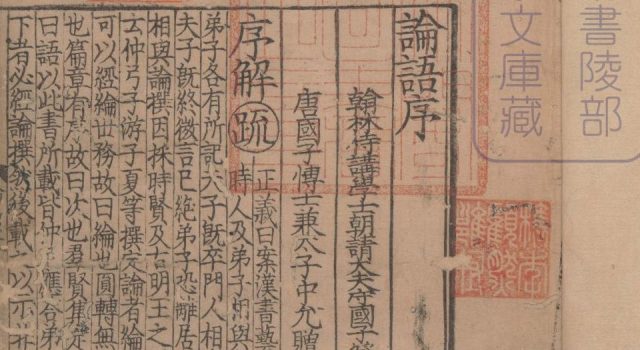 書陵部
文庫藏
論語序
翰林侍講學士朝請大夫守國子
唐國子博士兼太子中允贈
序解
疏
正義曰案漢書藝
時人及弟子相與
弟子各有所記夫子既卒門人相
夫子既終微言已絕弟子恐離居
相與論撰因採時賢及古明王之
云仲弓子游子夏等撰定論者綸
可以經綸世務故曰綸也圓轉無
也篇章有序故曰次也羣賢集定
曰語以此書所載皆仲尼應答弟
下者必經論撰然後載之以示非